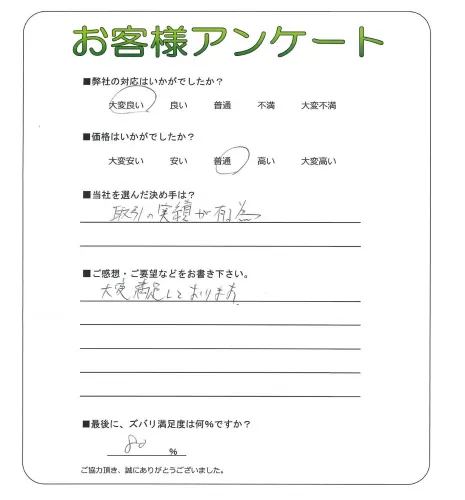 お客様アンケート
■弊社の対応はいかがでしたか？
大変良い 良い 普通 不満 大変不満
■価格はいかがでしたか？
大変安い 安い 普通 高い 大変高い
■当社を選んだ決め手は？
取引の実績が有る為
■ご感想・ご要望などをお書き下さい。
大変満足しております
■最後に、ズバリ満足度は何%ですか？
80 %
ご協力頂き、誠にありがとうございました。